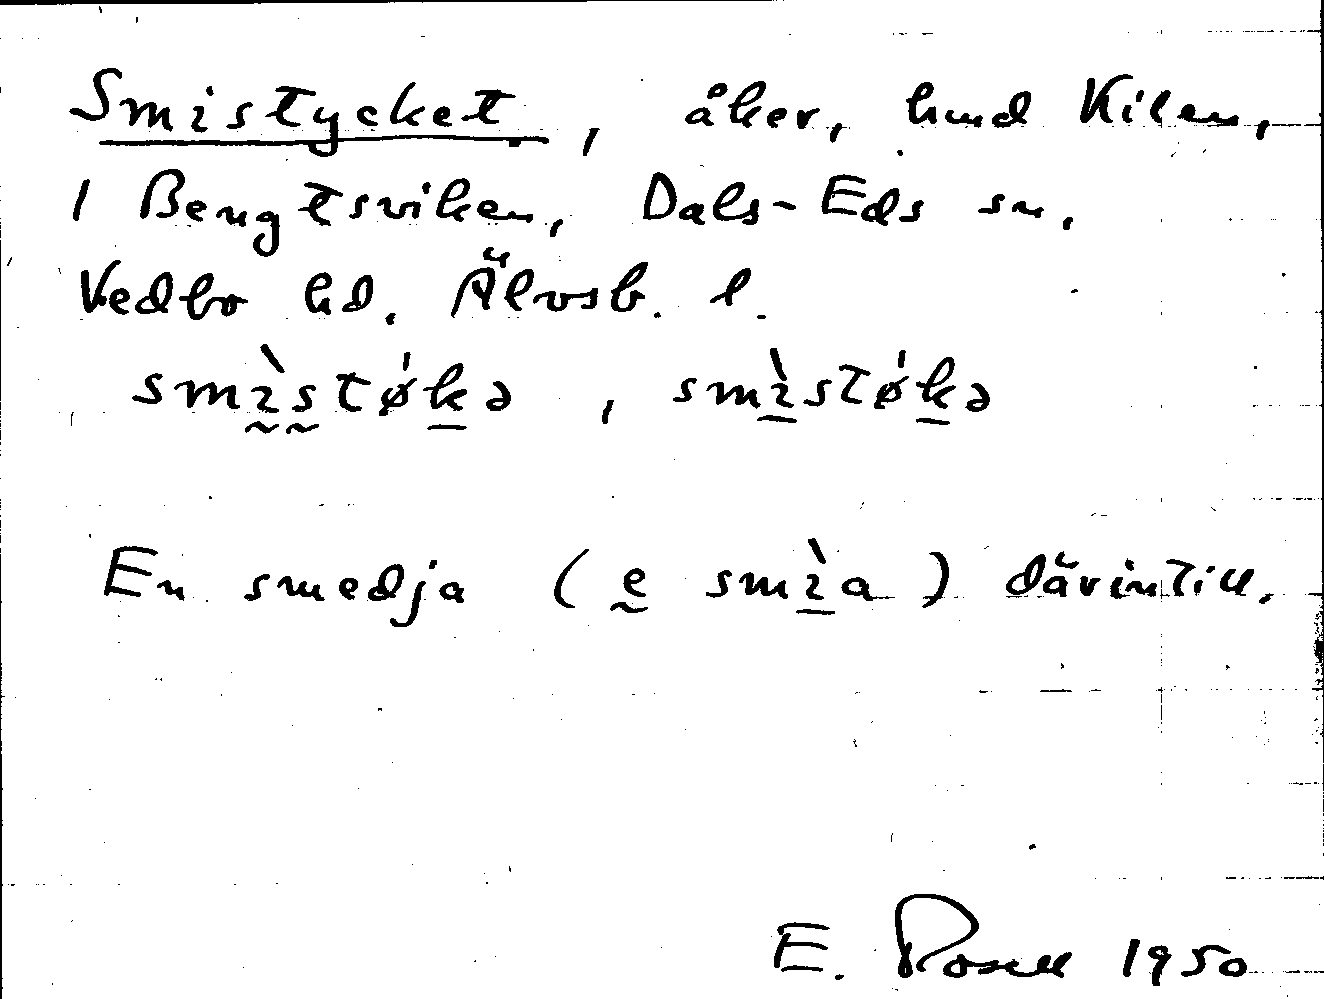 Smistycket, åker, hmd Kilen,
1 Bengtsviken, Dals-Eds sn,
Vedbo hd. Älvsb. l.
smìstø'kə, smìstø'kə
En smedja (e smìa) därintill.
E. Rosell 1950